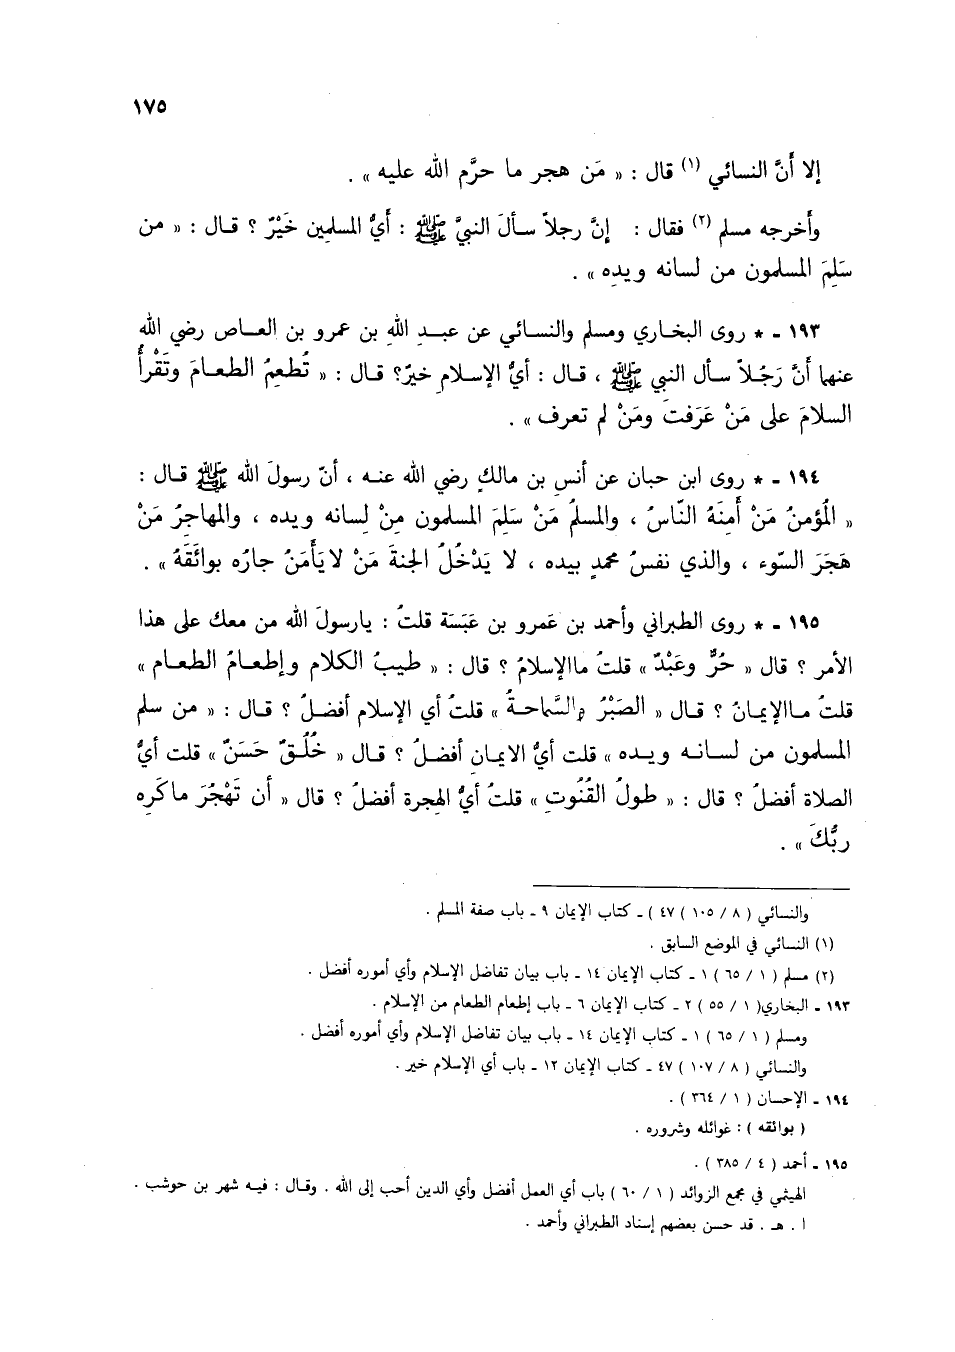 ١٧٥
إلا أَنَّ النسائي (١) قال : « مَن هجر ما حرَّم الله عليه » .
وأخرجه مسلم (٢) فقال : إنَّ رجلاً سألَ النبيَّ ﷺ : أَيُّ المسلمين خَيْرٌ ؟ قـال : « من
سَلِمَ المسلمون من لسانه ويدِه » .
١٩٣ ـ * روى البخاري ومسلم والنسائي عن عبـدِ اللهِ بن عمرو بن العـاص رضي الله
عنهما أَنَّ رَجُـلاً سأل النبي ﷺ ، قـال : أيُّ الإسلامِ خيرٌ؟ قـال : « تُطعِمُ الطعـامَ وتَقْرأُ
السلامَ على مَنْ عَرَفتَ ومَنْ لم تعرف » .
١٩٤ ـ * روى ابن حبان عن أنسِ بن مالكٍ رضي الله عنـه ، أنّ رسولَ الله ﷺ قـال :
« المُؤمنُ مَنْ أَمِنَهُ النَّاسُ ، والمسلمُ مَنْ سَلِمَ المسلمون مِنْ لِسانه ويده ، والمهاجِرُ مَنْ
هَجَرَ السّوء ، والذي نفسُ محمدٍ بيده ، لا يَدْخُلُ الجنةَ مَنْ لا يَأْمَنُ جارُه بوائقَهُ » .
١٩٥ ـ * روى الطبراني وأحمد بن عَمرو بن عَبَسَة قلتُ : يارسولَ الله من معك على هذا
الأمر ؟ قال « حُرٌّ وعَبْدٌ » قلتُ ماالإسلامُ ؟ قال : « طيبُ الكلام وإطعـامُ الطعـام »
قلتُ مـاالإيمـانُ ؟ قـال « الصَبْرُ والسَّماحـةُ » قلتُ أي الإسلام أفضـلُ ؟ قـال : « من سلم
المسلمون من لسـانـه ويـده » قلت أيُّ الايمـانِ أفضـلُ ؟ قـال « خُلُـقٌ حَسَنٌ » قلت أيُّ
الصلاة أفضلُ ؟ قال : « طولُ القُنُوتِ » قلتُ أيُّ الهِجرة أفضلُ ؟ قال « أن تَهْجُرَ ماكَرِه
ربُّكَ » .
والنسائي ( ٨ / ١٠٥ ) ٤٧ ) ـ كتاب الإيمان ٩ ـ باب صفة المسلم .
(١) النسائي في الموضع السابق .
(٢) مسلم ( ١ / ٦٥ ) ١ ـ كتاب الإيمان ١٤ ـ باب بيان تفاضل الإسلام وأي أموره أفضل .
١٩٣ ـ البخاري( ١ / ٥٥ ) ٢ ـ كتاب الإيمان ٦ ـ باب إطعام الطعام من الإسلام .
ومسلم ( ١ / ٦٥ ) ١ ـ كتاب الإيمان ١٤ ـ باب بيان تفاضل الإسلام وأي أموره أفضل .
والنسائي ( ٨ / ١٠٧ ) ٤٧ ـ كتاب الإيمان ١٢ ـ باب أي الإسلام خير .
١٩٤ ـ الإحسان ( ١ / ٣٦٤ ) .
( بوائقه ) : غوائله وشروره .
١٩٥ ـ أحمد ( ٤ / ٣٨٥ ) .
الهيثمي في مجمع الزوائد ( ١ / ٦٠ ) باب أي العمل أفضل وأي الدين أحب إلى الله . وقـال : فيـه شهر بن حوشب .
ا . هـ . قد حسن بعضهم إسناد الطبراني وأحمد .